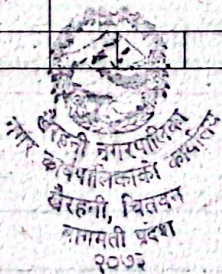 खैरहनी नगरपालिका
नगर कार्यपालिकाको कार्यालय
खैरहनी, चितवन
बागमती प्रदेश
२०७२